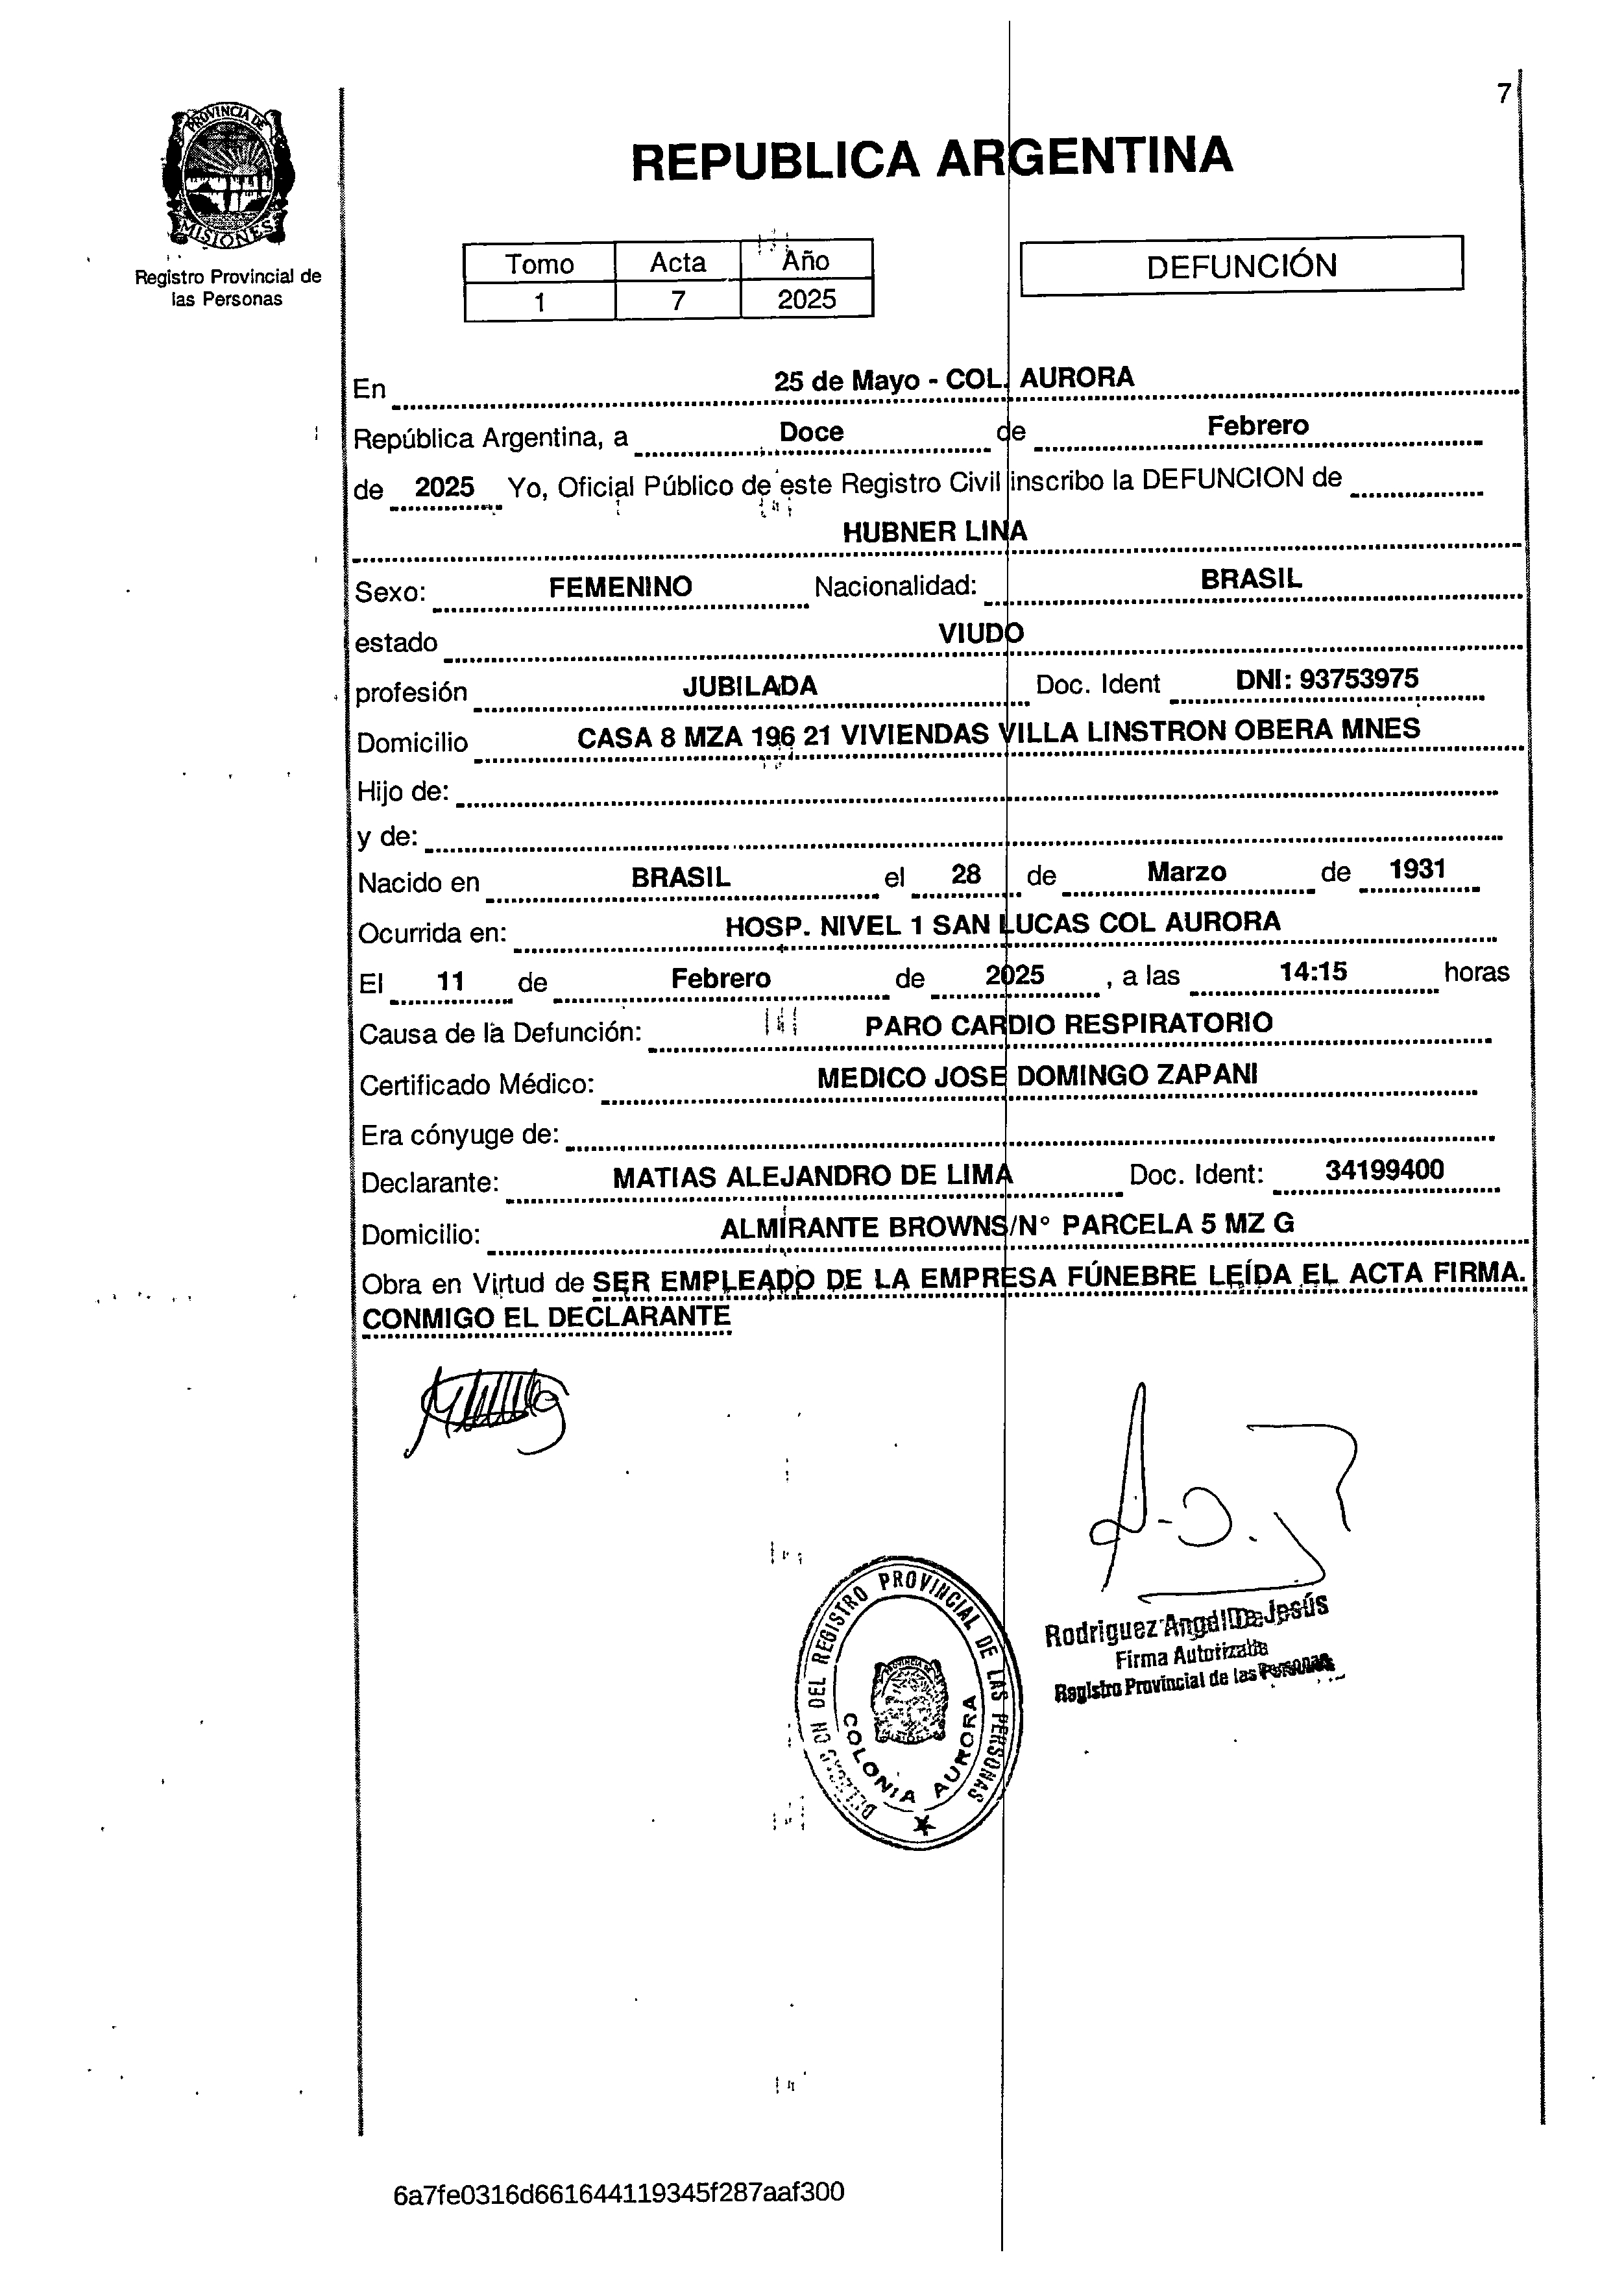 7
PROVINCIA DE
MISIONES
Registro Provincial de
las Personas
REPUBLICA ARGENTINA
Tomo Acta Año
1 7 2025
DEFUNCIÓN
En 25 de Mayo - COL. AURORA
República Argentina, a Doce de Febrero
de 2025 Yo, Oficial Público de este Registro Civil inscribo la DEFUNCION de
HUBNER LINA
Sexo: FEMENINO Nacionalidad: BRASIL
estado VIUDO
profesión JUBILADA Doc. Ident DNI: 93753975
Domicilio CASA 8 MZA 196 21 VIVIENDAS VILLA LINSTRON OBERA MNES
Hijo de:
y de:
Nacido en BRASIL el 28 de Marzo de 1931
Ocurrida en: HOSP. NIVEL 1 SAN LUCAS COL AURORA
El 11 de Febrero de 2025 , a las 14:15 horas
Causa de la Defunción: PARO CARDIO RESPIRATORIO
Certificado Médico: MEDICO JOSE DOMINGO ZAPANI
Era cónyuge de:
Declarante: MATIAS ALEJANDRO DE LIMA Doc. Ident: 34199400
Domicilio: ALMIRANTE BROWNS/N° PARCELA 5 MZ G
Obra en Virtud de SER EMPLEADO DE LA EMPRESA FÚNEBRE LEÍDA EL ACTA FIRMA.
CONMIGO EL DECLARANTE
Rodriguez Angel De Jesús
Firma Autorizada
Registro Provincial de las Personas
DEL REGISTRO PROVINCIAL DE LAS PERSONAS
COLONIA AURORA
6a7fe0316d661644119345f287aaf300